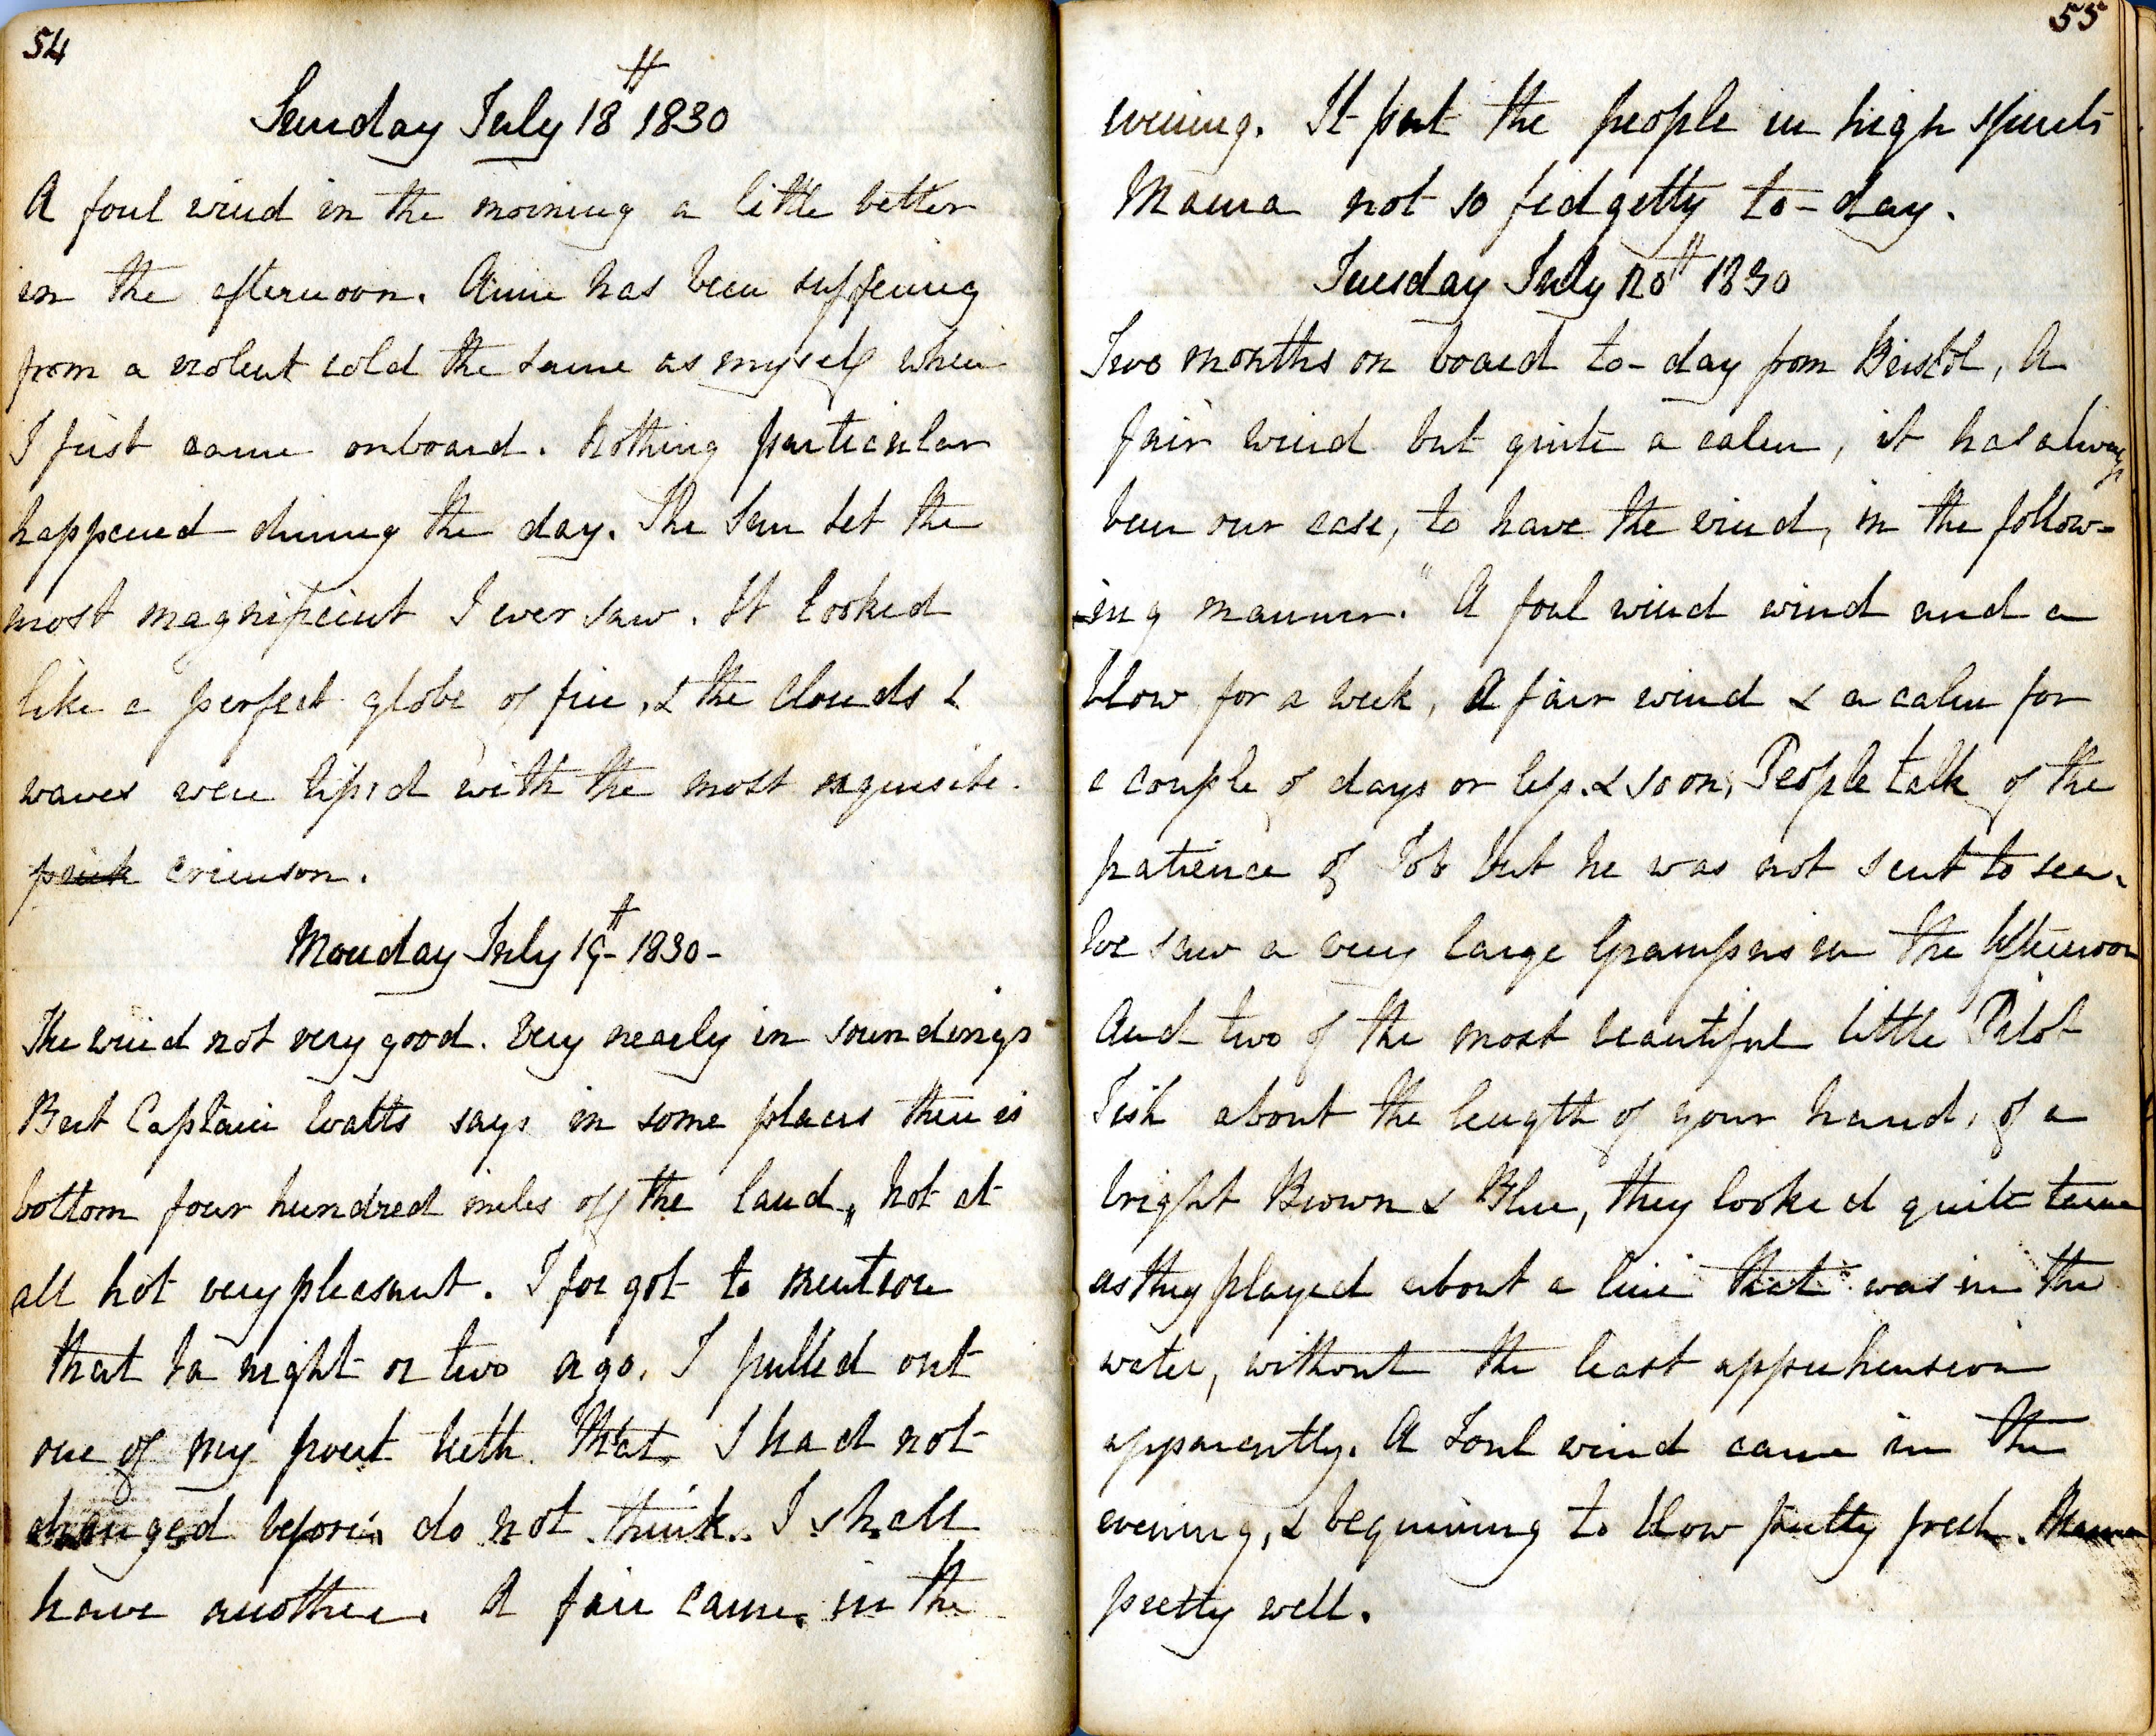 54
Sunday July 18th 1830
A foul wind in the morning a little better
in the afternoon. Annie has been suffering
from a violent cold the same as myself when
I first came onboard. Nothing particular
happened during the day. The Sun set the
most magnificent I ever saw. It looked
like a perfect globe of fire, & the clouds &
waves were tip'd with the most exquisite
pink crimson.
Monday July 19th 1830-
The wind not very good. Very nearly in soundings
But Captain Watts says in some places there is
bottom four hundred miles off the land, Not at
all hot very pleasant. I forgot to mention
that a night or two ago. I pulled out
one of my front teeth. That I had not
changed before, do not think I shall
have another. A fair came in the
55
evening. It put the people in high spirits
Mama not so fidgetty to-day.
Tuesday July 20th 1830
Two months on board to-day from Bristol, A
fair wind but quite a calm, it has always
been our case, to have the wind, in the follow-
-ing manner. "A foul wind wind and a
blow for a week, A fair wind & a calm for
a couple of days or less. & so on, People talk of the
patience of Job but he was not sent to sea.
We saw a very large Grampus in the Afternoon
And two of the most beautiful little Pilot
Fish about the length of your hand, of a
bright Brown & Blue, they looked quite tame
as they played about a line that was in the
water, without the least apprehension
apparently. A foul wind came in the
evening, & beginning to blow pretty fresh. Mama
pretty well.